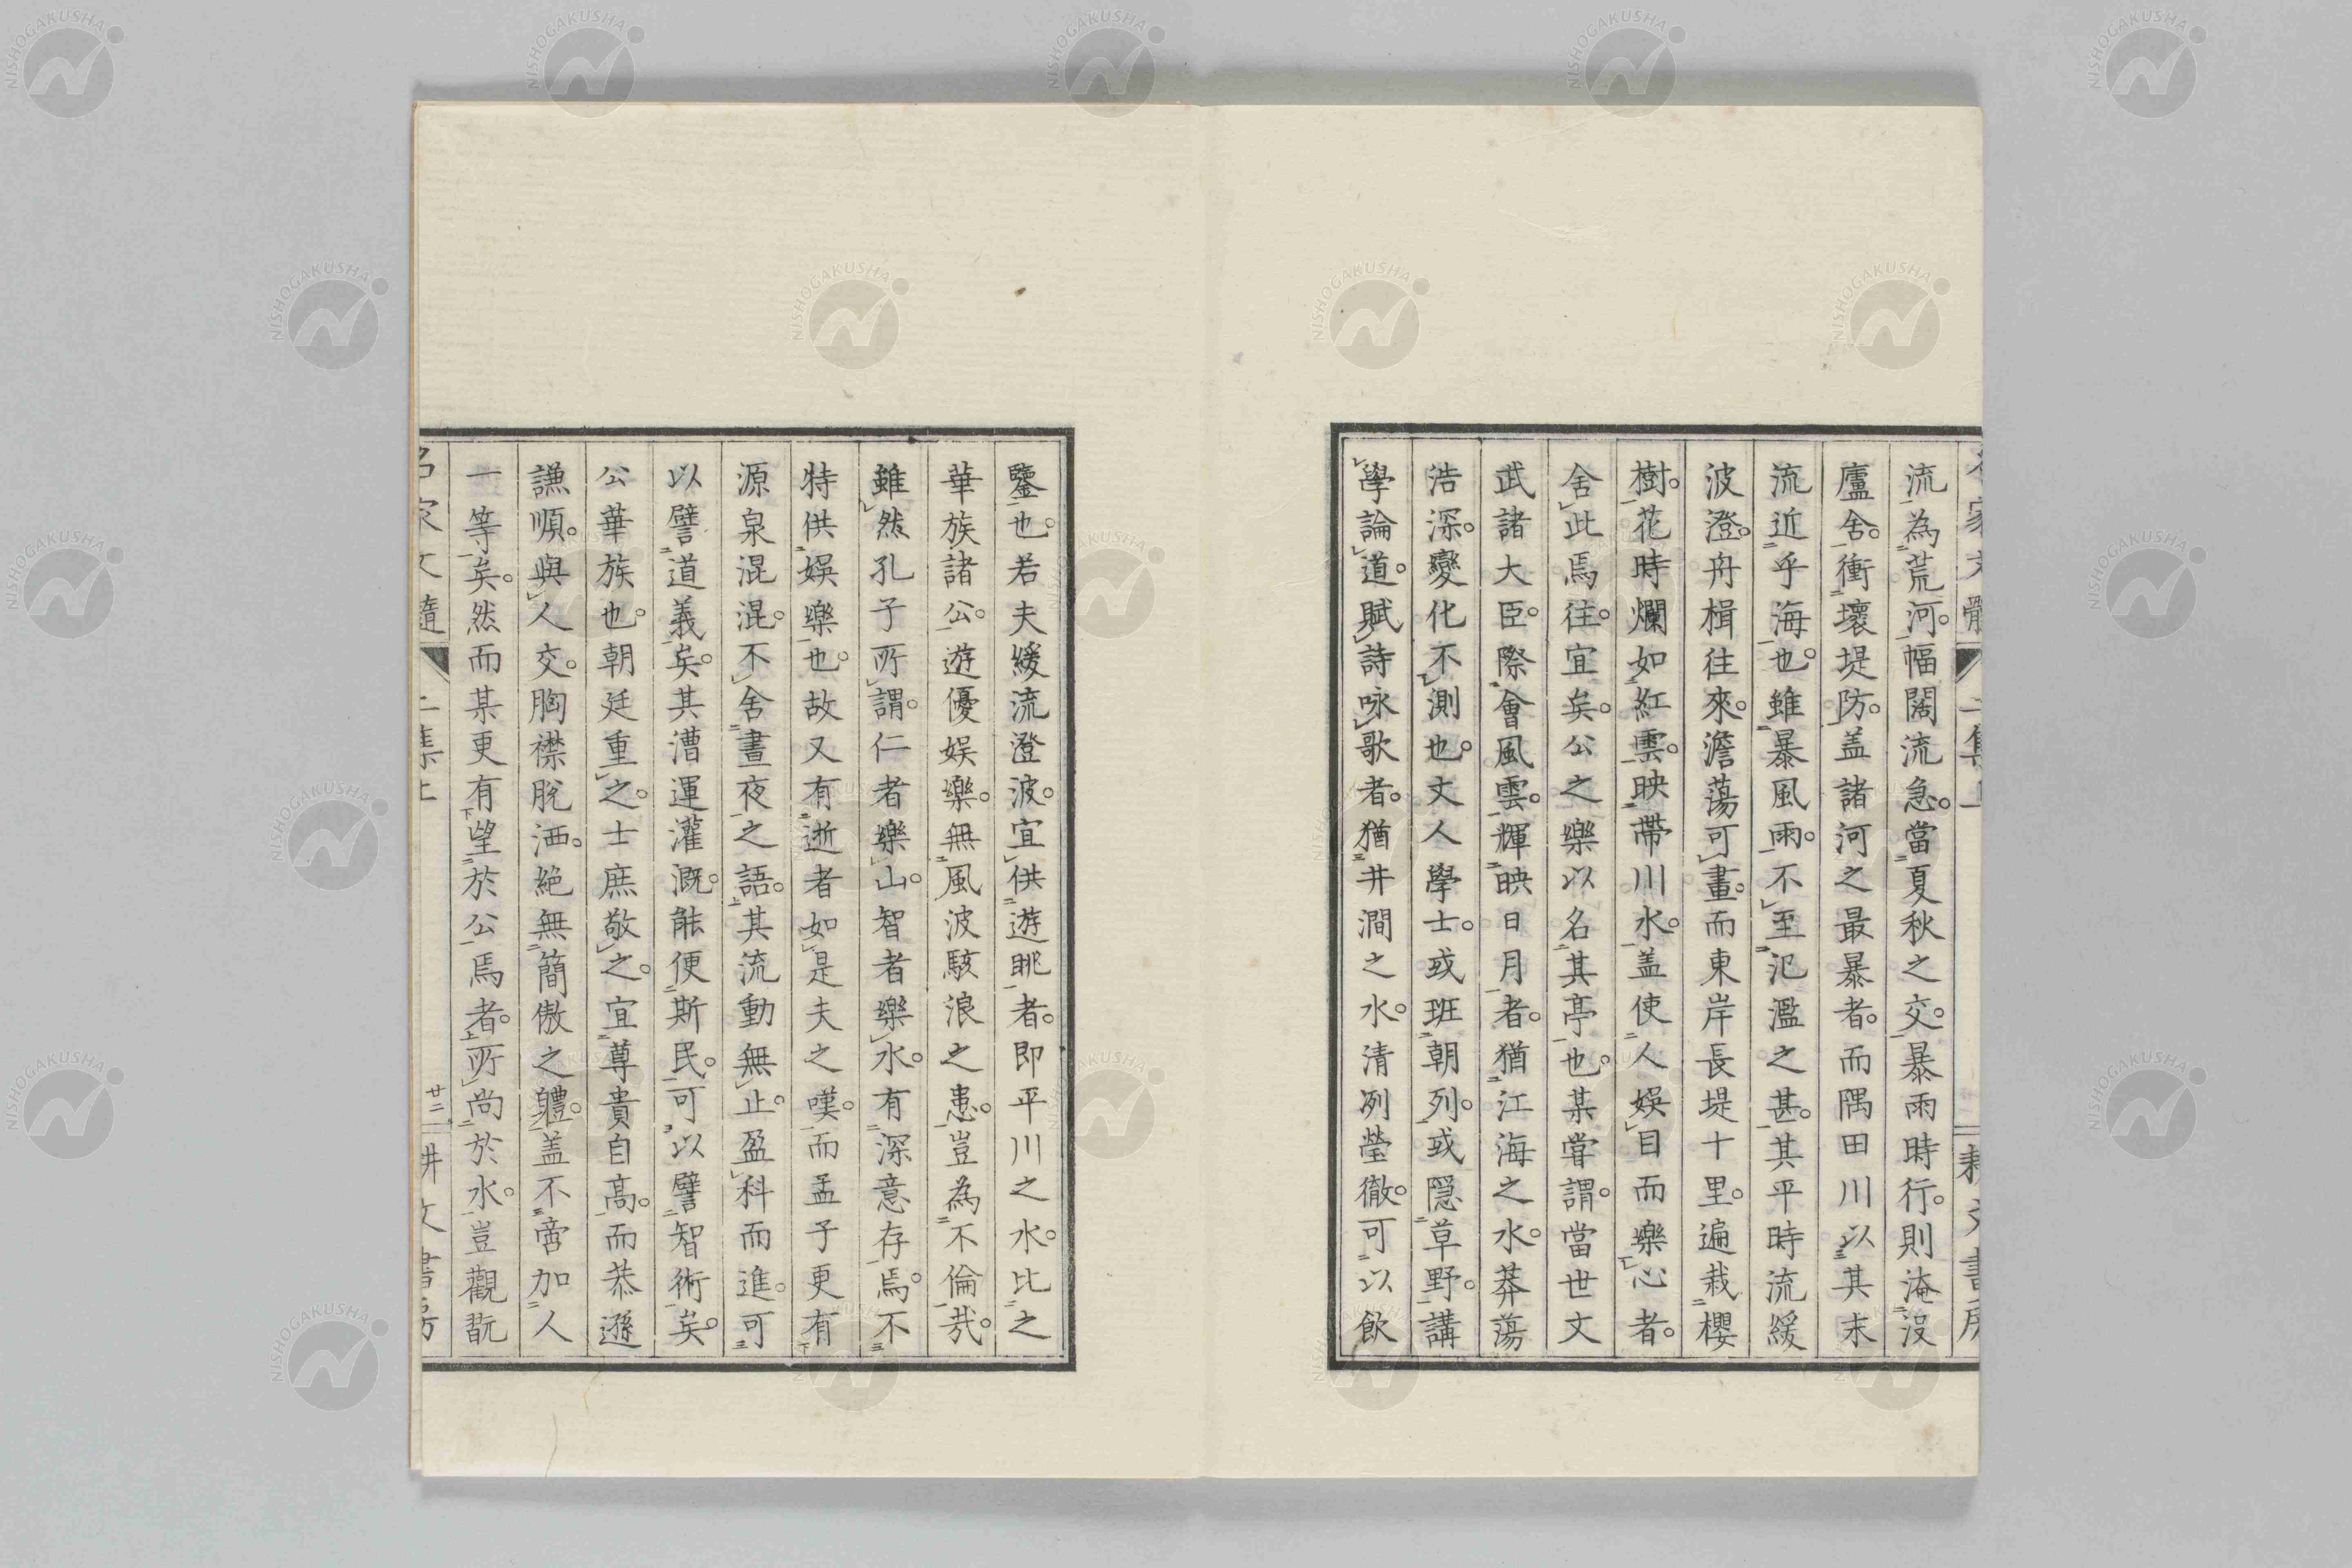 流為荒河。幅闊流急。當夏秋之交。暴雨時行。則淹沒
廬舍。衝壞堤防。盖諸河之最暴者。而隅田川以其末
流近乎海也。雖暴風雨。不至氾濫之甚。其平時流緩
波澄。舟楫往來。澹蕩可畫。而東岸長堤十里。遍栽櫻
樹。花時爛如紅雲。映帶川水。盖使人娛目而樂心者。
舍此焉往。宜矣。公之樂以名其亭也。某甞謂。當世文
武諸大臣。際會風雲。輝映日月者。猶江海之水。莽蕩
浩深。變化不測也。文人學士。或班朝列。或隱草野。講
學論道。賦詩咏歌者。猶井澗之水。清冽瑩徹。可以飲
鑒也。若夫緩流澄波。宜供遊眺者。即平川之水。比之
華族諸公。遊優娛樂。無風波駭浪之患。豈為不倫哉。
雖然孔子所謂。仁者樂山。智者樂水。有深意存焉。不
特供娛樂也。故又有逝者如是夫之嘆。而孟子更有
源泉混混。不舍晝夜之語。其流動無止。盈科而進。可
以譬道義矣。其漕運灌漑。能便斯民。可以譬智術矣。
公華族也。朝廷重之。士庶敬之。宜尊貴自高。而恭遜
謙順。與人交。胸襟脫洒。絕無簡傲之軆。盖不啻加人
一等矣。然而某更有望於公焉者。所尚於水。豈觀翫
名家文隨 二集上 廿二 耕文書房